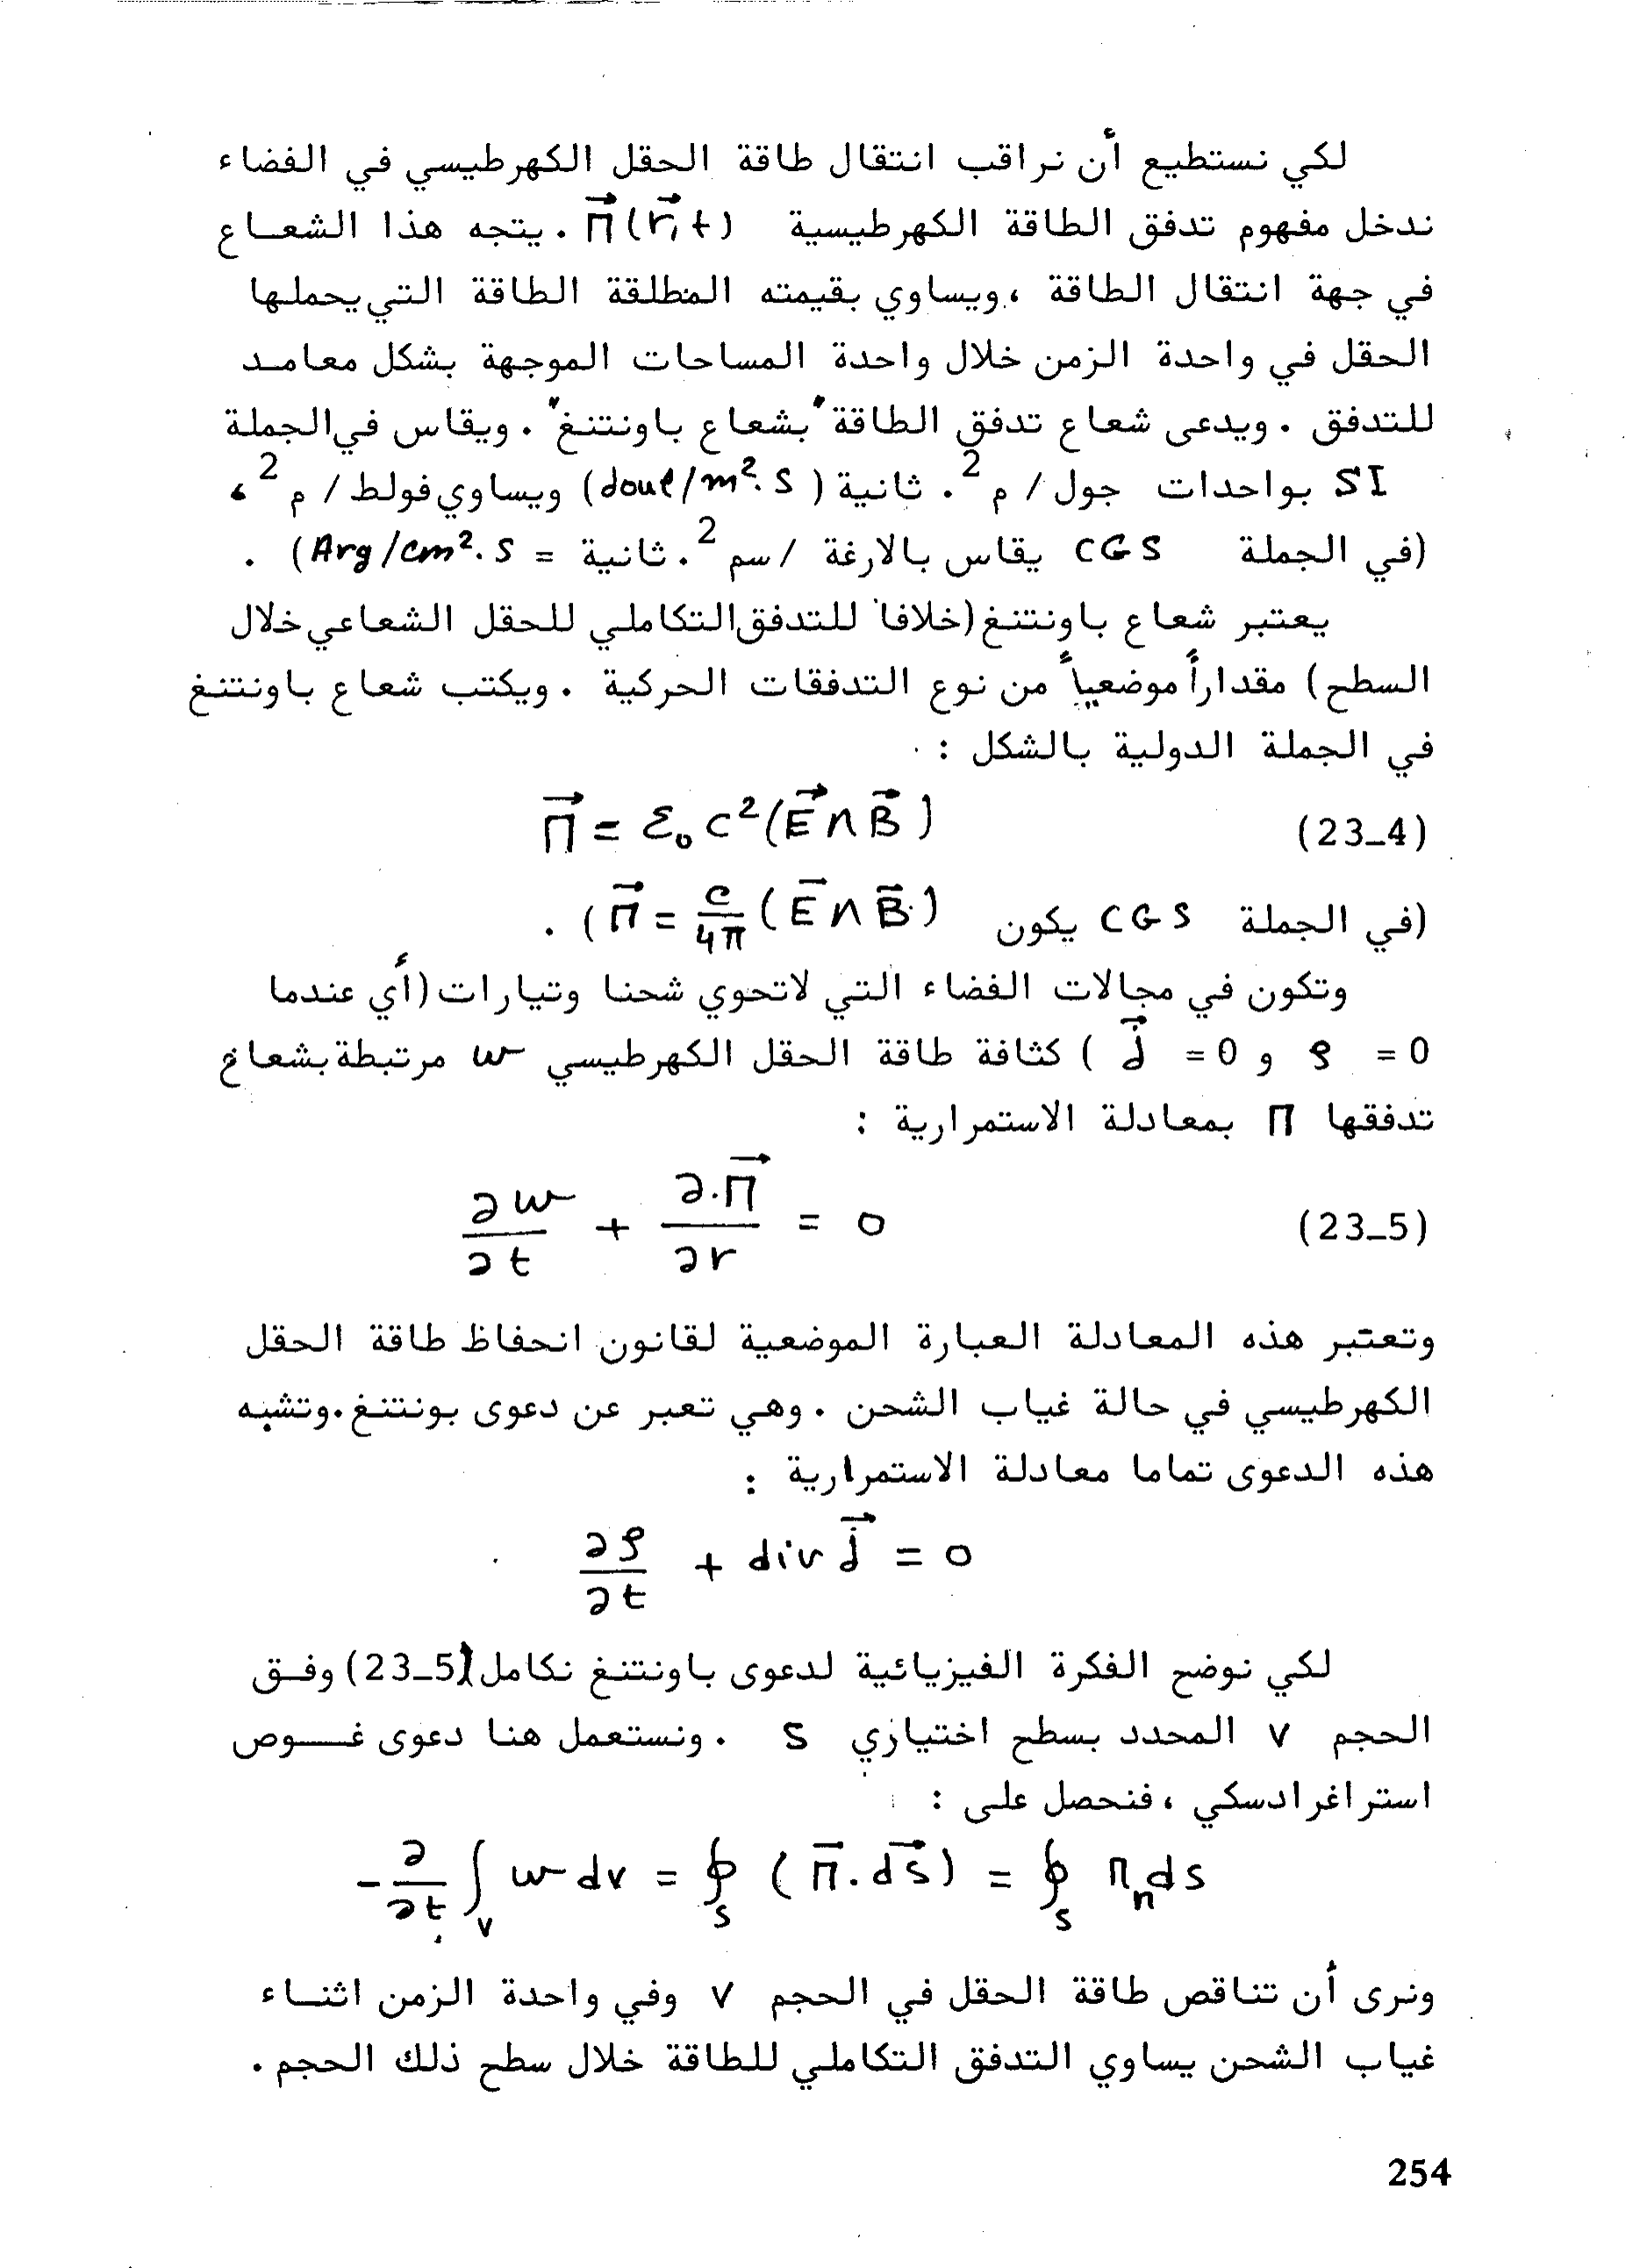 لكي نستطيع أن نراقب انتقال طاقة الحقل الكهرطيسي في الفضاء
ندخل مفهوم تدفق الطاقة الكهرطيسية Π⃗(r⃗,t) . يتجه هذا الشعاع
في جهة انتقال الطاقة ، ويساوي بقيمته المطلقة الطاقة التي يحملها
الحقل في واحدة الزمن خلال واحدة المساحات الموجهة بشكل معامد
للتدفق . ويدعى شعاع تدفق الطاقة "بشعاع باونتنغ" . ويقاس في الجملة
SI بواحدات جول / م² . ثانية (Joul/m².S) ويساوي فولط / م² ،
(في الجملة CGS يقاس بالارغة / سم² . ثانية = Arg/cm².S) .
يعتبر شعاع باونتنغ (خلافا للتدفق التكاملي للحقل الشعاعي خلال
السطح) مقداراً موضعياً من نوع التدفقات الحركية . ويكتب شعاع باونتنغ
في الجملة الدولية بالشكل :
Π⃗ = ε₀ c² (E⃗ Λ B⃗) (23_4)
(في الجملة CGS يكون Π⃗ = c/4π (E⃗ Λ B⃗)) .
وتكون في مجالات الفضاء التي لاتحوي شحنا وتيارات (أي عندما
ρ = 0 و j⃗ = 0 ) كثافة طاقة الحقل الكهرطيسي w مرتبطة بشعاع
تدفقها Π بمعادلة الاستمرارية :
∂w/∂t + ∂.Π⃗/∂r = 0 (23_5)
وتعتبر هذه المعادلة العبارة الموضعية لقانون انحفاظ طاقة الحقل
الكهرطيسي في حالة غياب الشحن . وهي تعبر عن دعوى بونتنغ . وتشبه
هذه الدعوى تماما معادلة الاستمرارية :
∂ρ/∂t + div j⃗ = 0
لكي نوضح الفكرة الفيزيائية لدعوى باونتنغ نكامل (23_5) وفق
الحجم V المحدد بسطح اختياري S . ونستعمل هنا دعوى غوص
استراغرادسكي ، فنحصل على :
-∂/∂t ∫_V w dv = ∮_S (Π⃗.dS⃗) = ∮_S Π_n ds
ونرى أن تناقص طاقة الحقل في الحجم V وفي واحدة الزمن اثناء
غياب الشحن يساوي التدفق التكاملي للطاقة خلال سطح ذلك الحجم .
254